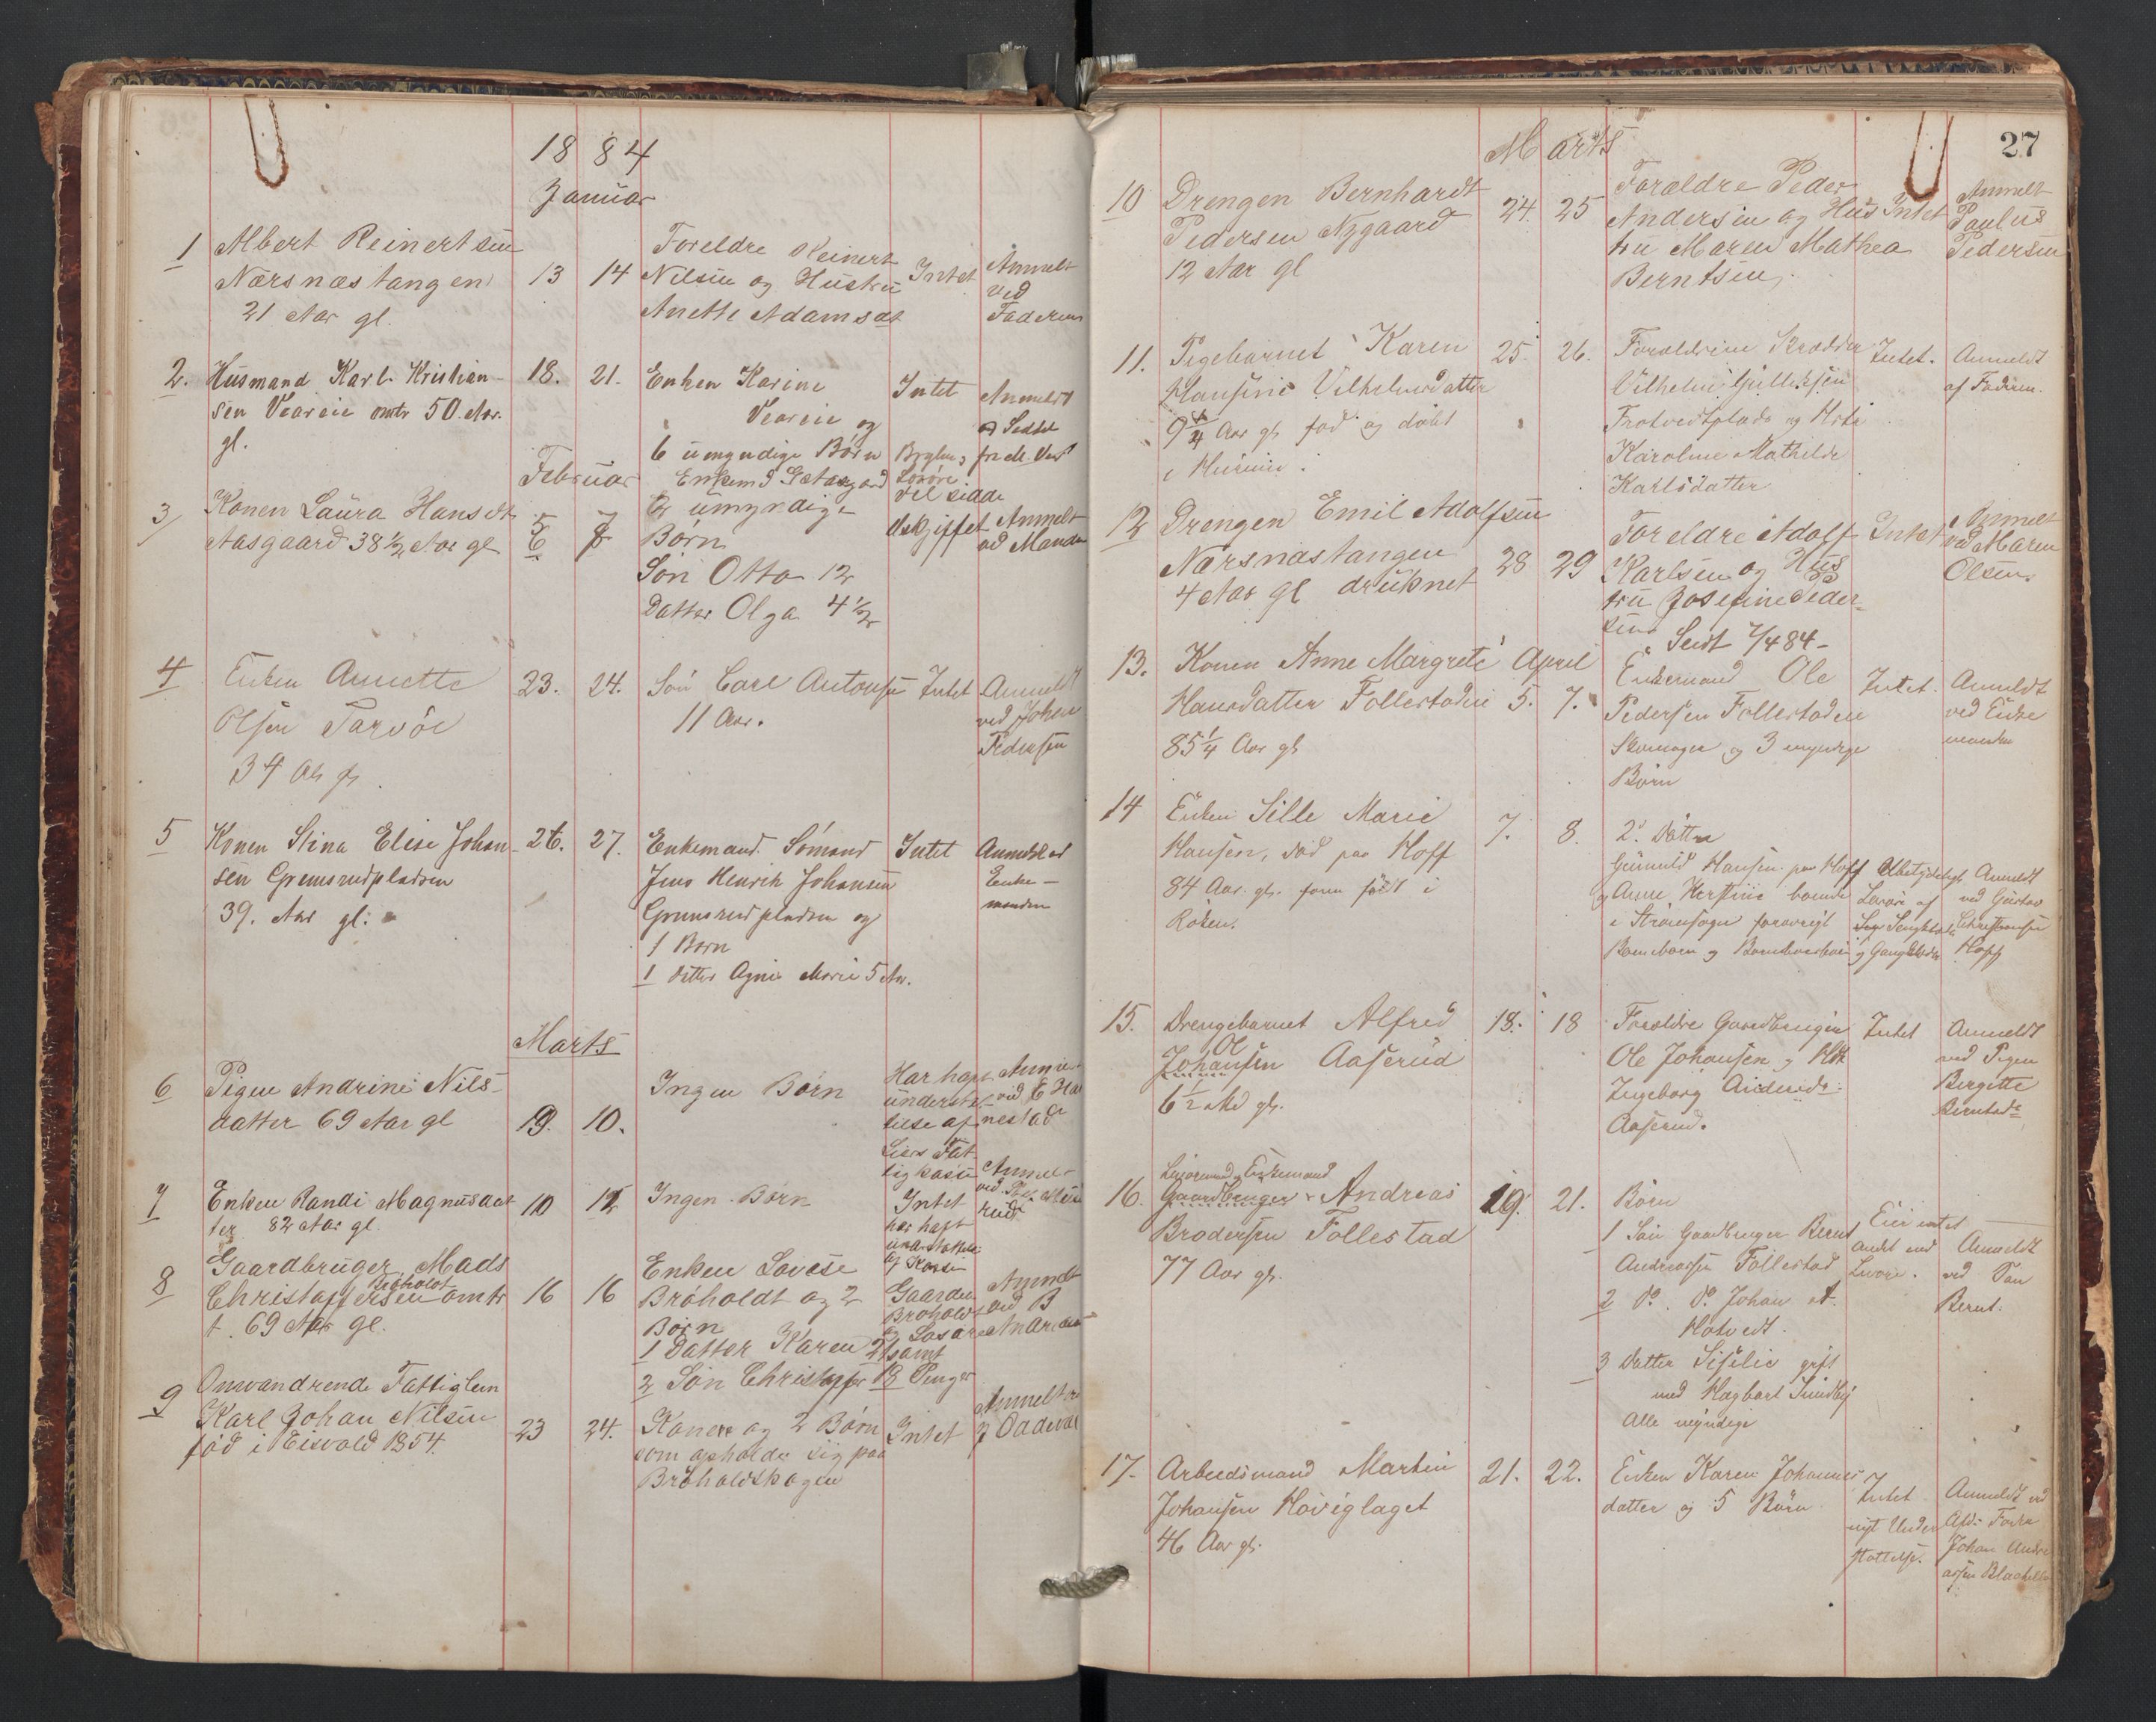 1884
Januar
1 Albert Reinertsen
Nærsnæstangen
21 Aar gl.
13 14
Foreldre Reinert
Nilsen og Hustru
Anette Adamsdt
Intet
Anmelt
ved
Faderen
2. Husmand Karl Kristian-
sen Vearen omtr 50 Aar.
gl.
18. 21.
Enken Karine
Vearen og
6 umyndige Børn
Intet
Anmeldt
Februar
3 Konen Laura Hansdt
Aasgaard 38 1/2 Aar gl
Enkem
2 umyndige
Børn
Søn Otto 12
Datter Olga 4 1/2
Løsøre
vil sidde
uskiftet
Anmelt
ved Manden
4 Enken Annette
Olsen
34
23. 24.
Søn Carl Antonsen
11 Aar.
Intet
Anmeldt
ved Johan
Pedersen
5 Konen Stina Elise Johan-
sen Grønsrudpladsen
39. Aar gl.
26. 27.
Enkemand Sømand
Jens Henrik Johansen
Grønsrudpladsen og
1 Barn
1 Datter Agnes Marie 5 Aar.
Intet
Anmeldt ved
Enke-
manden
Marts
6 Pigen Andrine Nils-
datter 69 Aar gl
9. 10.
Ingen Børn
Har haft
understøt-
telse af
Liers Fat-
tigkasse
7 Enken Randi Magnusdat
ter 82 Aar gl.
10 12
Ingen Børn
Intet
har haft
Anmelt
8 Gaardbruger Mads
Christoffersen Brøholdt omtr
t. 69 Aar gl.
16 16
Enken Lovise
Brøholdt og 2
Børn
1 Datter Karen 21
2 Søn Christoffer 18
Gaarden
Brøholdt
og Løsøre
samt
Penger
Anmelt
ved B
Andreas
9 Omvandrende Fattiglem
Karl Johan Nilsen
fød i Eisvold 1854.
23 24.
Konen og 2 Børn
som opholder sig paa
Brøholdtskogen
Intet
Anmelt
27
Marts
10 Drengen Bernhardt
Pedersen Nygaard
12 Aar gl
24. 25
Forældre Peder
Andersen og Hus
tru Maren Mathea
Berntsen.
Intet
Anmelt
Paulus
Pedersen
11. Pigebarnet Karen
Hansine Vilhelmsdatter
Aar gl. fød og døbt
i Hurum.
25. 26.
Forældrene Skrædder
Vilhelm Gulliksen
og Hstr
Karoline Mathilde
Karlsdatter
Intet.
Anmeldt
af Faderen.
12 Drengen Emil Adolfsen
Nærsnæstangen
4 Aar gl druknet
28 29
Foreldre Adolf
Karlsen og Hus
tru Josefine Peder-
sen
Intet
Anmelt
ved Maren
Olsen.
Sendt 7/4 84-
April
13. Konen Anne Margrete
Hansdatter Follestaden
85 1/4 Aar gl
5. 7.
Enkemand Ole
Pedersen Follestaden
Skomager og 3 myndige
Børn
Intet.
Anmeldt
ved Enke
manden
14 Enken Sille Marie
Hansen, død paa Hoff
84 Aar. gl. født i
Røken.
7. 8.
2 Døttre
Gunnild Hansen paa Hoff
og Anne boende
i Strømsogn forøvrigt
Børnebørn og Børnebørnsbørn
Ubetydeligt
Løsøre af
Sengklæder
og Gangklæder
Anmeldt
ved Gustav
Christiansen
Hoff
15. Drengebarnet Alfred
Ol
Johansen Aaserud
6 1/2 Md gl.
18. 18
Forældre Gaardbruger
Ole Johansen og Hstr
Ingeborg Andersdt.
Aaserud.
Intet
Anmeldt
ved Pigen
Bergitte
Berntsdt
16. Enkemand
Gaardbruger Andreas
Brodersen Follestad
77 Aar gl.
19. 21.
Børn
1 Søn Gaardbruger Bernt
Andreassen Follestad
2 Do. Do. Johan A.
Hotvedt.
3 Datter Sisilie gift
med Hagbart
Alle myndige
Eier intet
andet end
Løsøre.
Anmeldt
ved Søn
Bernt.
17. Arbeidsmand Martin
Johansen Høviglaget
46 Aar gl.
21. 22.
Enken Karen Johannes
datter og 5 Børn
Intet
nyt Under
støttelse.
Anmeldt ved
Johan Andre
assen